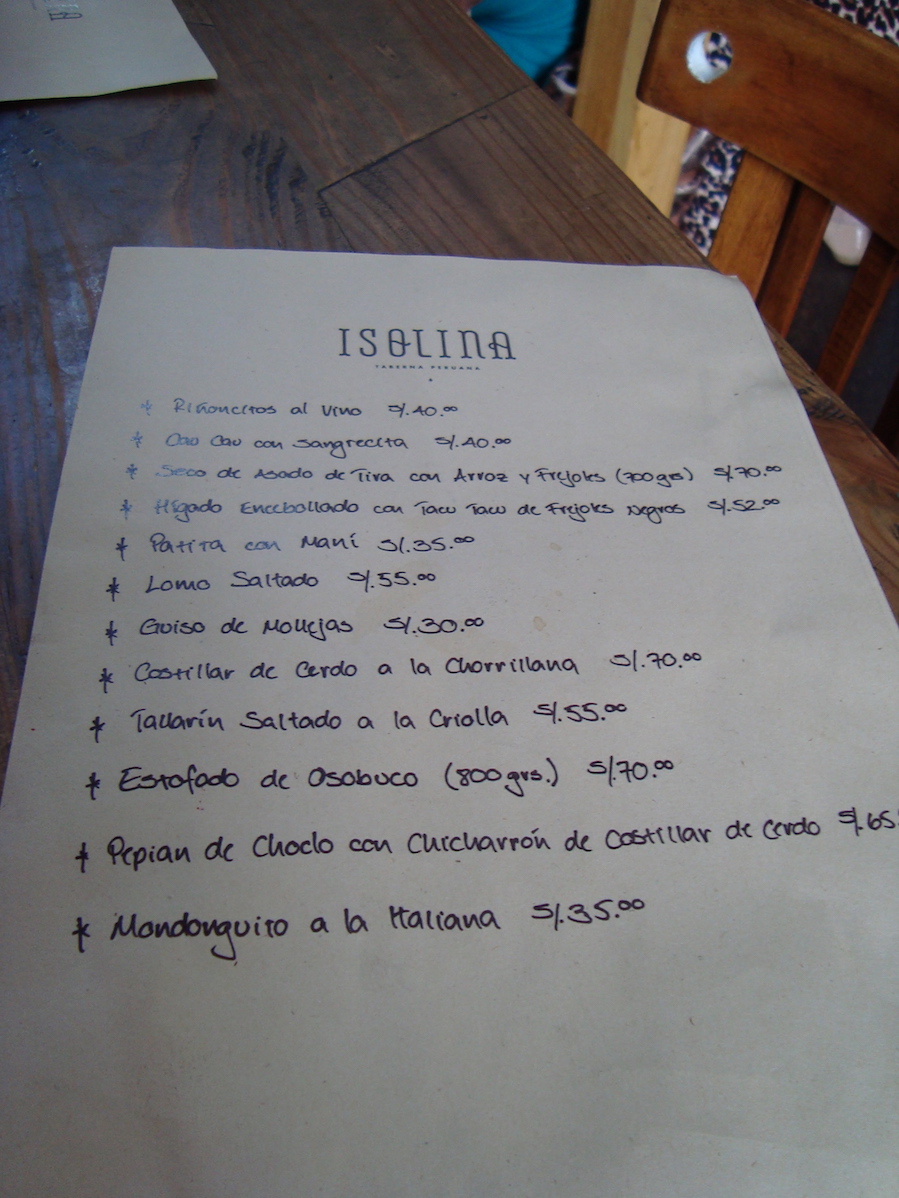 ISOLINA
TABERNA PERUANA
* Riñoncitos al Vino S/.40.00
* Cau Cau con Sangrecita S/.40.00
* Seco de Asado de Tira con Arroz y Frejoles (700grs) S/.70.00
* Hígado Encebollado con Tacu Tacu de Frejoles Negros S/.52.00
* Patita con Maní S/.35.00
* Lomo Saltado S/.55.00
* Guiso de Mollejas S/.30.00
* Costillar de Cerdo a la Chorrillana S/.70.00
* Tallarín Saltado a la Criolla S/.55.00
* Estofado de Osobuco (800grs.) S/.70.00
* Pepian de Choclo con Chicharrón de Costillar de Cerdo S/.65.
* Mondonguito a la Italiana S/.35.00